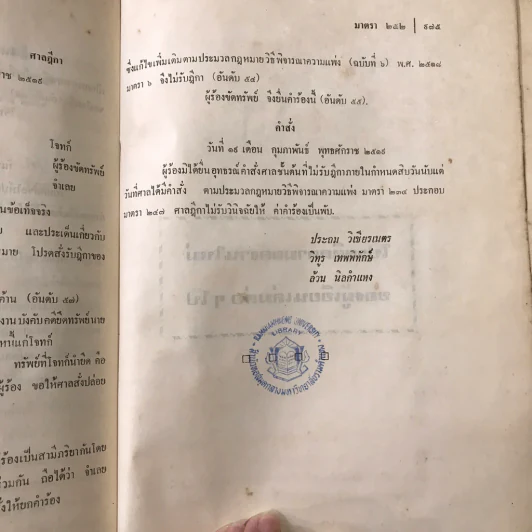 ศาลฎีกา
ราช ๒๕๑๙
โจทก์
ผู้ร้องขัดทรัพย์
จำเลย
นข้อเท็จจริง
และประเด็นเกี่ยวกับ
มาย โปรดสั่งรับฎีกาของ
ค้าน (อันดับ ๕๗)
งานบังคับคดียึดทรัพย์นาย
ทรัพย์ที่โจทก์นำยึด คือ
ผู้ร้อง ขอให้ศาลสั่งปล่อย
ร้องเป็นสามีภริยากันโดย
ร่วมกัน ถือได้ว่า จำเลย
งให้ยกคำร้อง
มาตรา ๒๕๒ | ๙๗๕
ซึ่งแก้ไขเพิ่มเติมตามประมวลกฎหมายวิธีพิจารณาความแพ่ง (ฉบับที่ ๖) พ.ศ. ๒๕๑๘
มาตรา ๖ จึงไม่รับฎีกา (อันดับ ๕๔)
ผู้ร้องขัดทรัพย์ จึงยื่นคำร้องนี้ (อันดับ ๕๕).
คำสั่ง
วันที่ ๑๙ เดือน กุมภาพันธ์ พุทธศักราช ๒๕๑๙
ผู้ร้องมิได้ยื่นอุทธรณ์คำสั่งศาลชั้นต้นที่ไม่รับฎีกาภายในกำหนดสิบวันนับแต่
วันที่ศาลได้มีคำสั่ง ตามประมวลกฎหมายวิธีพิจารณาความแพ่ง มาตรา ๒๓๔ ประกอบ
มาตรา ๒๔๗ ศาลฎีกาไม่รับวินิจฉัยให้ ค่าคำร้องเป็นพับ.
ประถม วิเชียรเนตร
วิทูร เทพพิทักษ์
ล้วน นิลกำแหง
LIBRARY